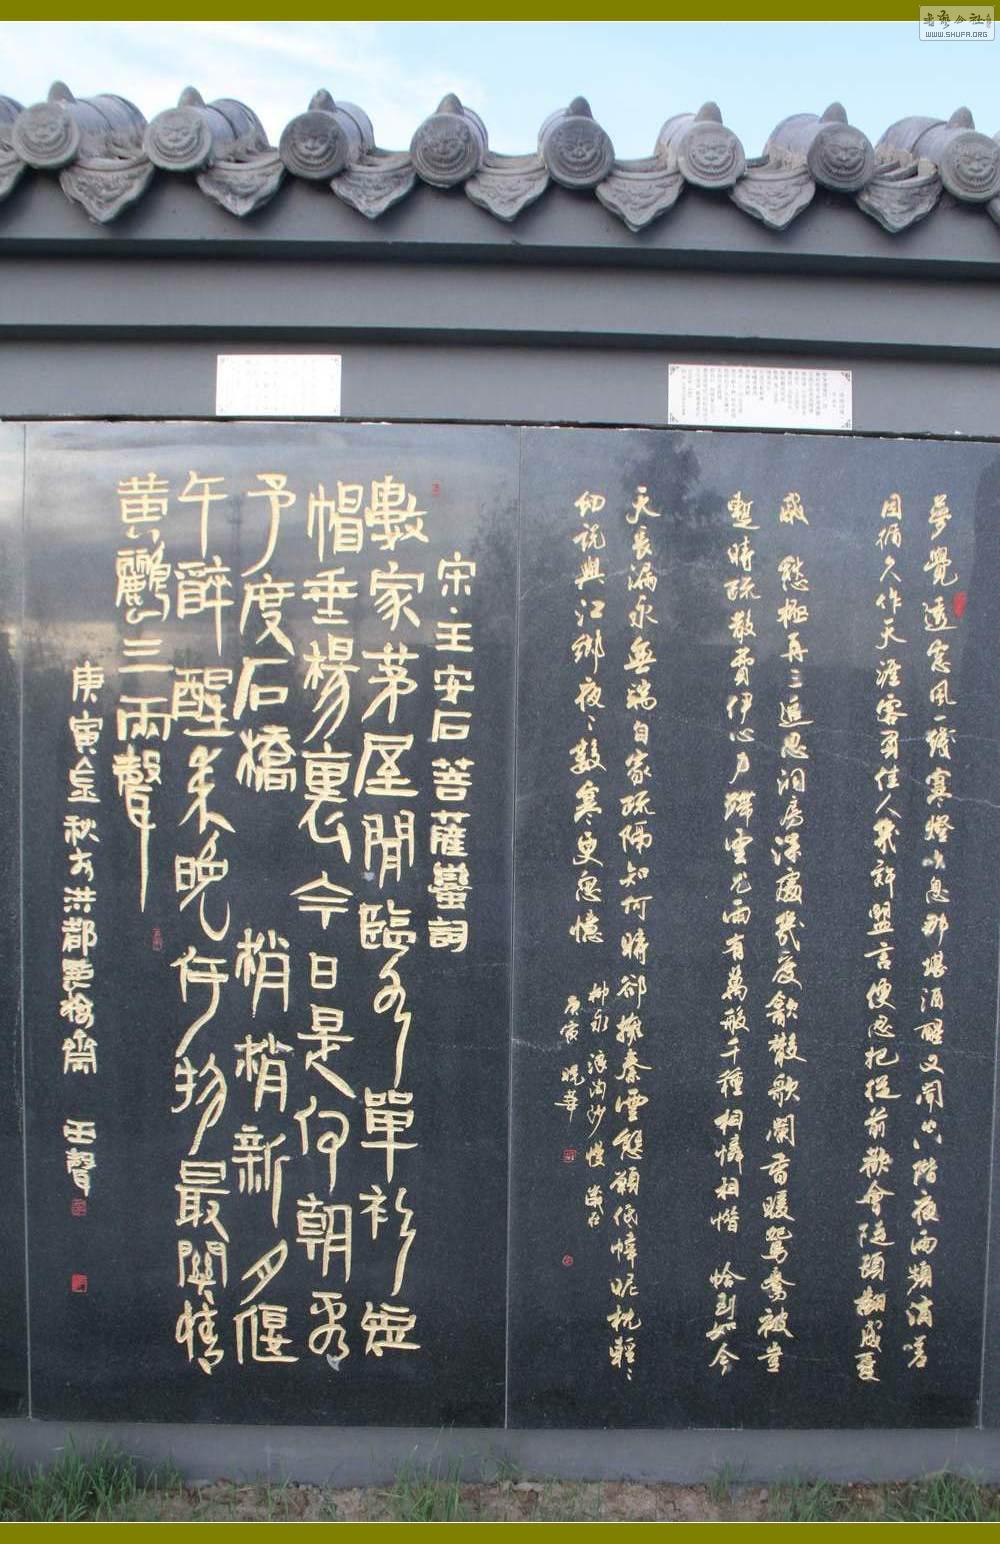 書法公社
WWW.SHUFA.ORG
夢覺透窗風一線寒燈吹息那堪酒醒又聞空階夜雨頻滴嗟
因循久作天涯客負佳人幾許盟言便忍把從前歡會陡頓翻成憂
戚 愁極再三追思洞房深處幾度飲散歌闌香暖鴛鴦被豈
暫時疏散費伊心力殢雲尤雨有萬般千種相憐相惜 恰到如今
天長漏永無端自家疏隔知何時卻擁秦雲態願低幃昵枕輕〻
細說與江鄉夜〻數寒更思憶
柳永 浪淘沙慢
庚寅 曉華
宋·王安石菩薩蠻詞
數家茅屋閒臨水單衫短
帽垂楊裏今日是何朝看
予度石橋 梢梢新月偃
午醉醒來晚何物最關情
黃鸝三兩聲
庚寅金秋於洪都 齋